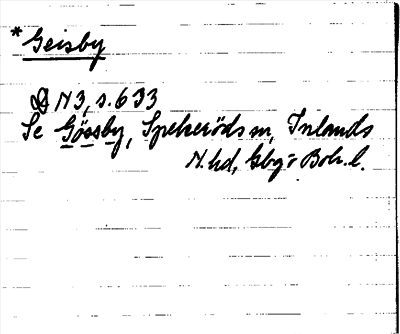 *Geisby
N3, s. 633
Se Gössby, Spekeröds sn, Inlands
N. hd, Gbg o Boh. l.